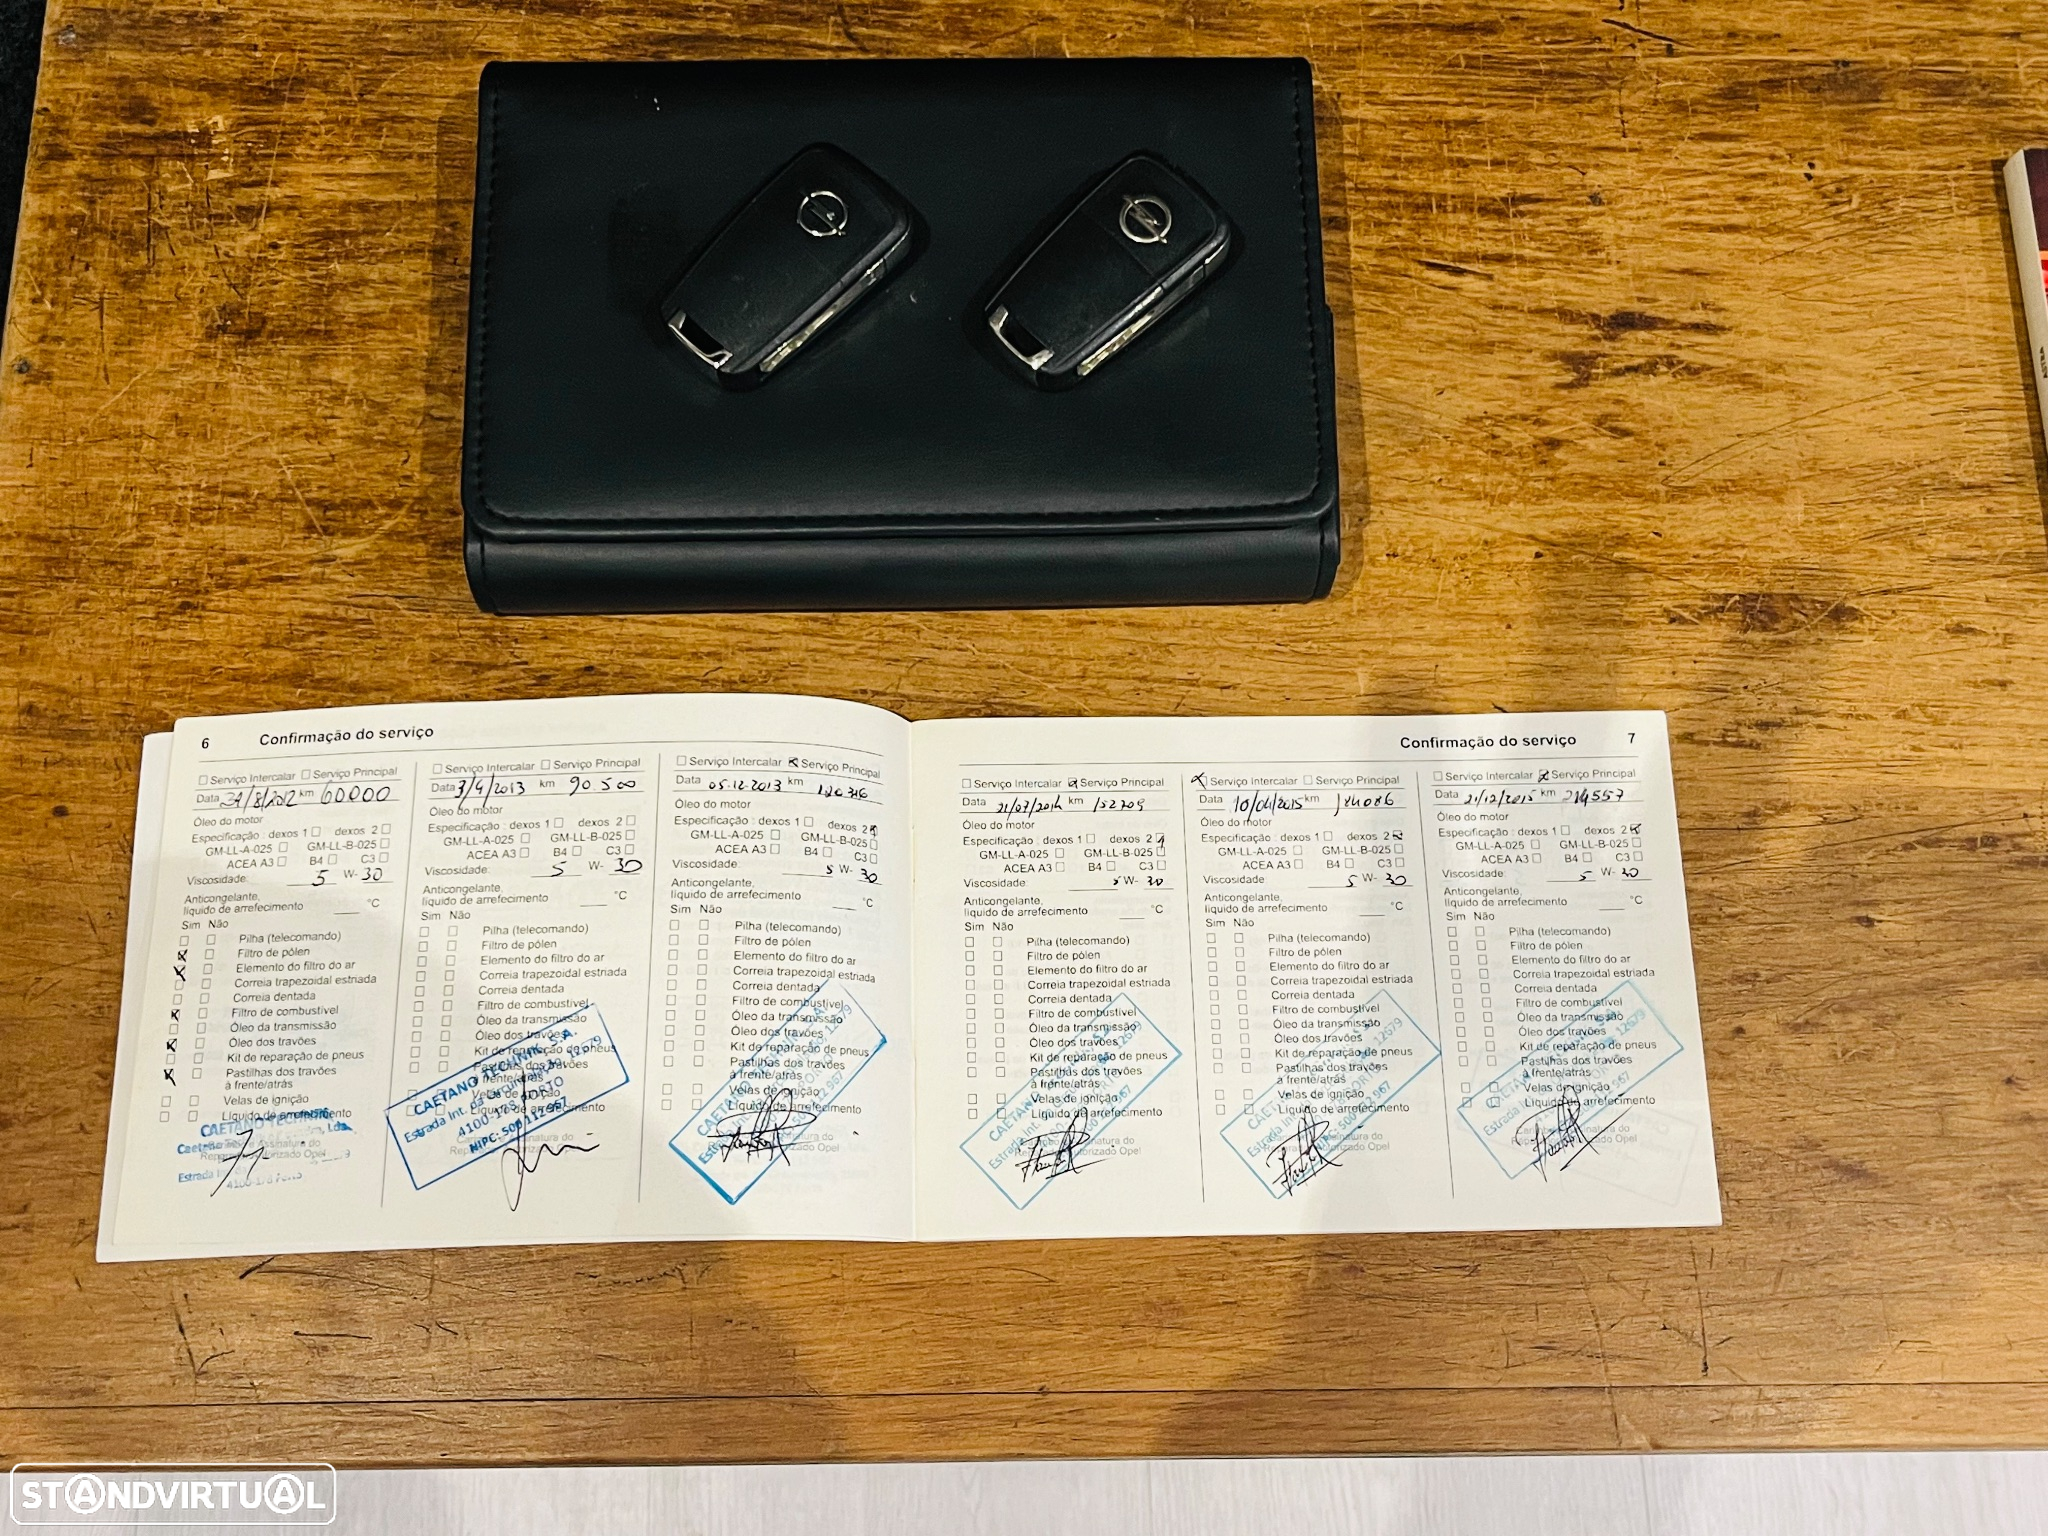 6 Confirmação do serviço
Serviço Intercalar Serviço Principal
Data 31/8/2012 km 60000
Óleo do motor
Especificação : dexos 1 dexos 2
GM-LL-A-025 GM-LL-B-025
ACEA A3 B4 C3
Viscosidade: 5 W- 30
Anticongelante,
líquido de arrefecimento °C
Sim Não
Pilha (telecomando)
Filtro de pólen
Elemento do filtro do ar
Correia trapezoidal estriada
Correia dentada
Filtro de combustível
Óleo da transmissão
Óleo dos travões
Kit de reparação de pneus
Pastilhas dos travões
à frente/atrás
Velas de ignição
Líquido de arrefecimento
CAETANO TECHNIK
4100-178 PORTO
Serviço Intercalar Serviço Principal
Data 3/4/2013 km 90.500
Óleo do motor
Especificação : dexos 1 dexos 2
GM-LL-A-025 GM-LL-B-025
ACEA A3 B4 C3
Viscosidade: 5 W- 30
Anticongelante,
líquido de arrefecimento °C
Sim Não
Pilha (telecomando)
Filtro de pólen
Elemento do filtro do ar
Correia trapezoidal estriada
Correia dentada
Filtro de combustível
Óleo da transmissão
Óleo dos travões
Kit de reparação de pneus
Pastilhas dos travões
à frente/atrás
Velas de ignição
Líquido de arrefecimento
CAETANO TECHNIK, S.A.
Estrada Int. da Circunvalação 12679
4100-178 PORTO
NIPC: 500 112 967
Serviço Intercalar Serviço Principal
Data 05.12.2013 km 120316
Óleo do motor
Especificação : dexos 1 dexos 2
GM-LL-A-025 GM-LL-B-025
ACEA A3 B4 C3
Viscosidade: 5 W- 30
Anticongelante,
líquido de arrefecimento °C
Sim Não
Pilha (telecomando)
Filtro de pólen
Elemento do filtro do ar
Correia trapezoidal estriada
Correia dentada
Filtro de combustível
Óleo da transmissão
Óleo dos travões
Kit de reparação de pneus
Pastilhas dos travões
à frente/atrás
Velas de ignição
Líquido de arrefecimento
Confirmação do serviço 7
Serviço Intercalar Serviço Principal
Data 21/07/2014 km 152709
Óleo do motor
Especificação : dexos 1 dexos 2
GM-LL-A-025 GM-LL-B-025
ACEA A3 B4 C3
Viscosidade 5 W- 30
Anticongelante,
líquido de arrefecimento °C
Sim Não
Pilha (telecomando)
Filtro de pólen
Elemento do filtro do ar
Correia trapezoidal estriada
Correia dentada
Filtro de combustível
Óleo da transmissão
Óleo dos travões
Kit de reparação de pneus
Pastilhas dos travões
à frente/atrás
Velas de ignição
Líquido de arrefecimento
Serviço Intercalar Serviço Principal
Data 10/04/2015 km 184086
Óleo do motor
Especificação : dexos 1 dexos 2
GM-LL-A-025 GM-LL-B-025
ACEA A3 B4 C3
Viscosidade 5 W- 30
Anticongelante,
líquido de arrefecimento °C
Sim Não
Pilha (telecomando)
Filtro de pólen
Elemento do filtro do ar
Correia trapezoidal estriada
Correia dentada
Filtro de combustível
Óleo da transmissão
Óleo dos travões
Kit de reparação de pneus
Pastilhas dos travões
à frente/atrás
Velas de ignição
Líquido de arrefecimento
Serviço Intercalar Serviço Principal
Data 21/12/2015 km 214557
Óleo do motor
Especificação : dexos 1 dexos 2
GM-LL-A-025 GM-LL-B-025
ACEA A3 B4 C3
Viscosidade: 5 W- 30
Anticongelante,
líquido de arrefecimento °C
Sim Não
Pilha (telecomando)
Filtro de pólen
Elemento do filtro do ar
Correia trapezoidal estriada
Correia dentada
Filtro de combustível
Óleo da transmissão
Óleo dos travões
Kit de reparação de pneus
Pastilhas dos travões
à frente/atrás
Velas de ignição
Líquido de arrefecimento
STANDVIRTUAL